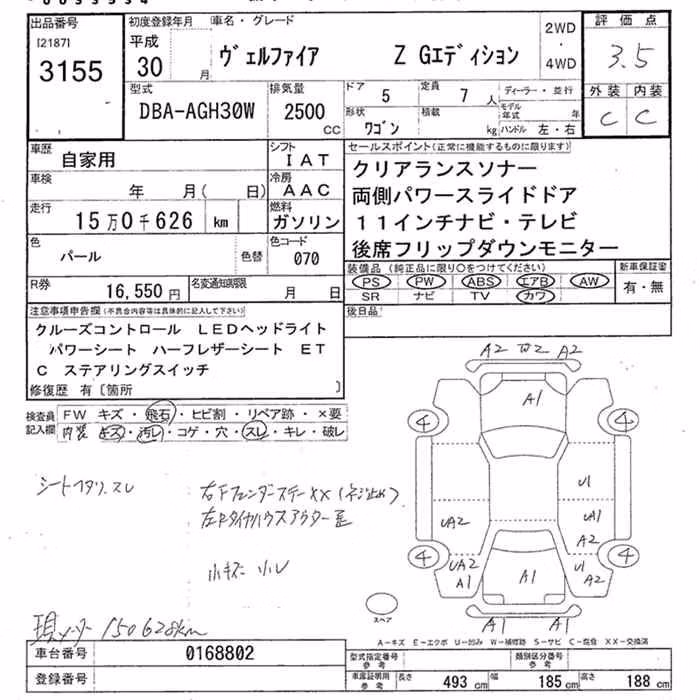 出品番号
[2187]
3155
初度登録年月
平成
30 月
車名・グレード
ヴェルファイア Z Gエディション
2WD
・
4WD
評価点
3.5
外装 内装
C C
型式
DBA-AGH30W
排気量
2500
CC
ドア
5
定員
7 人
形状
ワゴン
積載
kg
ディーラー・並行
モデル
年式 年
ハンドル 左・右
車歴
自家用
シフト
IAT
車検
年 月( 日)
冷房
AAC
走行
15万0千626 km
燃料
ガソリン
色
パール
色替
色コード
070
R券
16,550円
名変通知期限
月 日
セールスポイント(正常に機能するものに限ります)
クリアランスソナー
両側パワースライドドア
11インチナビ・テレビ
後席フリップダウンモニター
装備品(純正品に限り○をつけてください)
PS PW ABS エアB AW
SR ナビ TV カワ
新車保証書
有・無
後日品
注意事項申告欄(不具合内容等は具体的に記入して下さい)
クルーズコントロール LEDヘッドライト
パワーシート ハーフレザーシート ET
C ステアリングスイッチ
修復歴 有〔箇所 〕
検査員
記入欄
FW キズ・飛石・ヒビ割・リペア跡・×要
内装 キズ・汚レ・コゲ・穴・スレ・キレ・破レ
シートフタリ、スレ
右Fフェンダーステー××(ネジ止め)
小キズ 小U
現メーター 150628km
A2 W2 A2
A1
4 4
U1
UA2
UA1
A2
4 4
UA2
A1
A1
U1
A2
A1 A1
スペア
A－キズ E－エクボ U－凹み W－補修跡 S－サビ C－腐食 XX－交換済
車台番号
0168802
登録番号
型式指定番号
参考
類別区分番号
参考
車庫証明用
参考
長さ 493 cm
幅 185 cm
高さ 188 cm